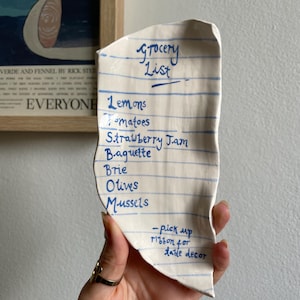 VERDE AND FENNEL BY RICK STEIN
EVERYONE
Grocery
List
Lemons
Tomatoes
Strawberry Jam
Baguette
Brie
Olives
Mussels
- pick up
ribbon for
table decor